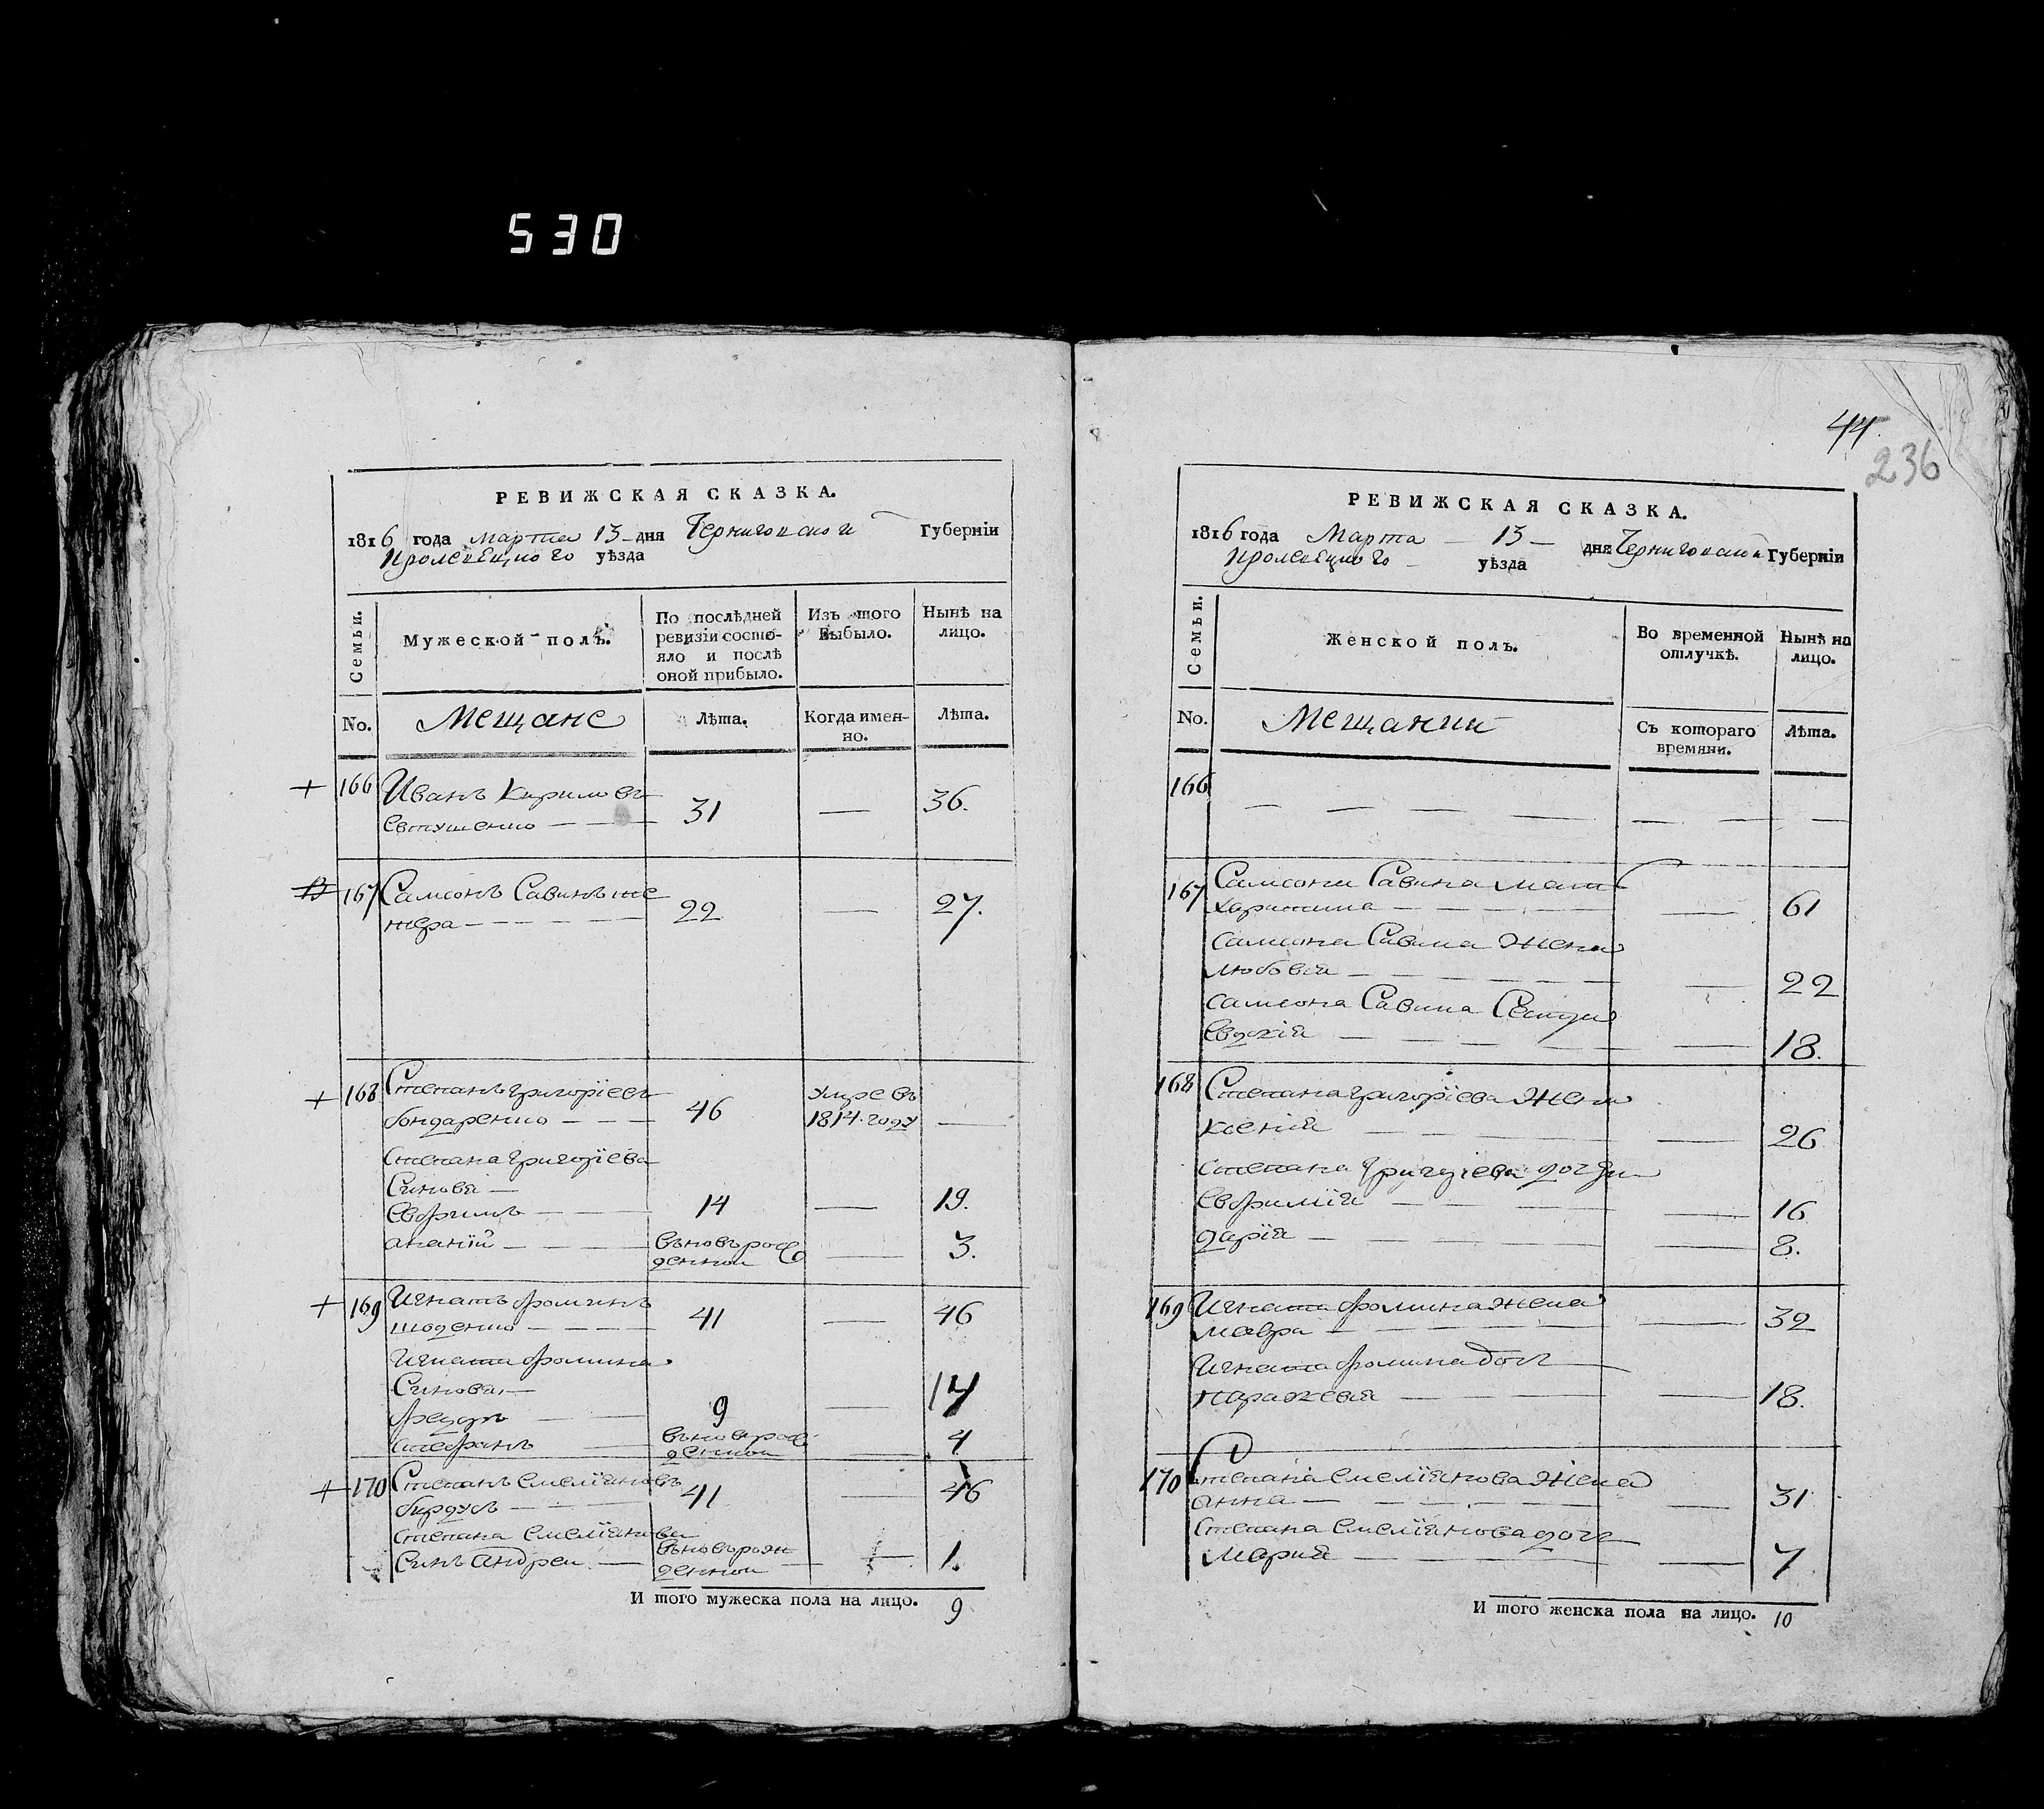 530
РЕВИЖСКАЯ СКАЗКА.
1816 года марта 13 дня Черниговской Губерніи
кролевецкого уѣзда
Семьи.
Мужеской полъ.
По послѣдней ревизіи состояло и послѣ оной прибыло.
Изъ того выбыло.
Нынѣ на лицо.
No.
Мещане
Лѣта.
Когда именно.
Лѣта.
166 Иванъ Кириловъ 31 — 36.
евтушенко
167 Самсонъ Савинъ 22 — 27.
168 Степанъ григоріевъ умре въ
бондаренко 46 1814. году —
степана григоріева
Синовя
Евфимъ 14 — 19.
ананій вновърож — 3.
денной
169 Игнатъ фоминъ 41 — 46
Игната фомина
Синова
федоръ 9 — 14
стефанъ вновърож 4
денной
170 Степанъ емеліяновъ 41 — 46
степана емеліянова
Синъ андреи вновърож — 1.
денной
И того мужеска пола на лицо. 9
44.
236
РЕВИЖСКАЯ СКАЗКА.
1816 года Марта — 13 — дня Черниговской Губерніи
кролевецкого уѣзда
Семьи.
Женской полъ.
Во временной отлучкѣ.
Нынѣ на лицо.
No.
Мещанки
Съ котораго времяни.
Лѣта.
166
167 Самсона Савина мат
Харитина — 61
самсона Савина жена
любовія — 22
самсона Савина Сестра
Евдокія — 18.
168 Степана григоріева жена
ксенія — 26
степана григоріева дочери
Евфимія — 16
дарія — 8.
169 Игната фомина жена
мавра — 32
Игната фомина доч
паражевія — 18.
170 Степана емеліянова жена
анна — 31
Степана емеліянова доч
Марія — 7
И того женска пола на лицо. 10